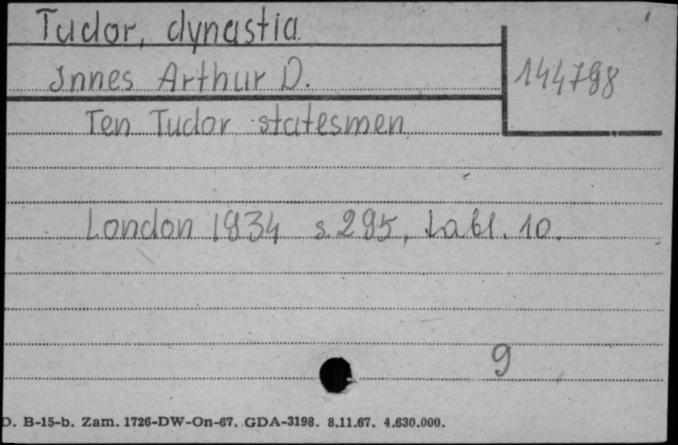 Tudor, dynastia
Innes Arthur D.
144798
Ten Tudor statesmen
London 1934 s. 295, tabl. 10.
9
D. B-15-b. Zam. 1726-DW-On-67. GDA-3198. 8.11.67. 4.630.000.